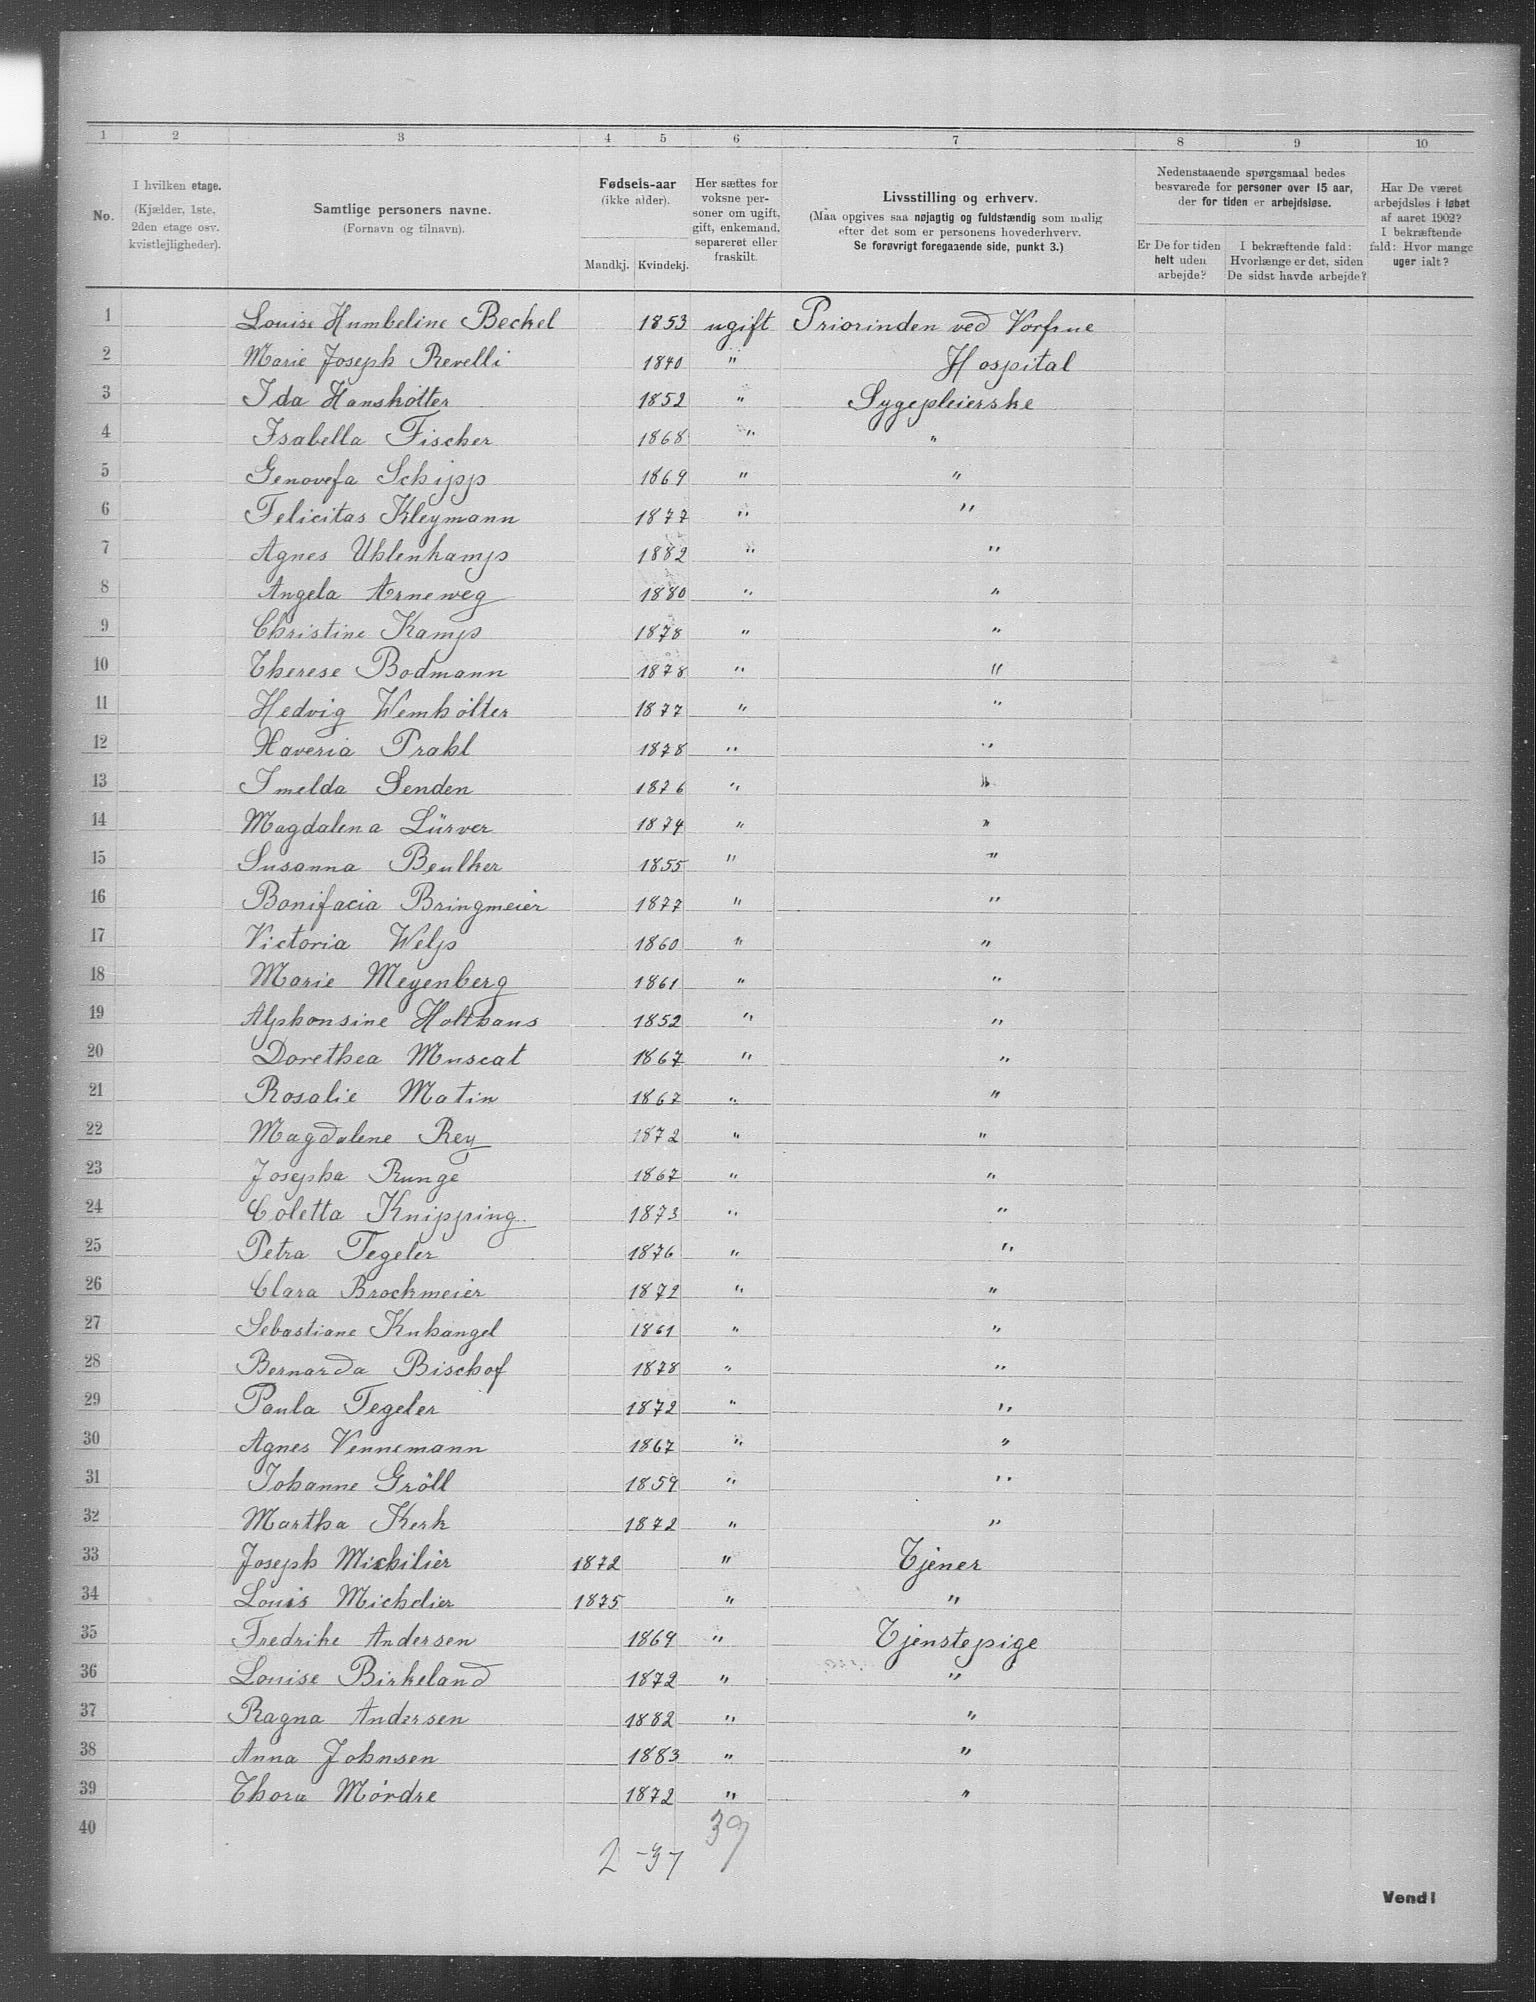 1 2 3 4 5 6 7 8 9 10
No. I hvilken etage. (Kjælder, 1ste, 2den etage osv. kvistlejligheder). Samtlige personers navne. (Fornavn og tilnavn). Fødsels-aar (ikke alder). Mandkj. Kvindekj. Her sættes for voksne personer om ugift, gift, enkemand, separeret eller fraskilt. Livsstilling og erhverv. (Maa opgives saa nøjagtig og fuldstændig som mulig efter det som er personens hovederhverv. Se forøvrigt foregaaende side, punkt 3.) Nedenstaaende spørgsmaal bedes besvarede for personer over 15 aar, der for tiden er arbejdsløse. Er De for tiden helt uden arbejde? I bekræftende fald: Hvorlænge er det, siden De sidst havde arbejde? Har De været arbejdsløs i løbet af aaret 1902? I bekræftende fald: Hvor mange uger ialt?
1 Louise Humbeline Beckel 1853 ugift Priorinden ved Vorfrue
2 Marie Joseph Revelli 1840 " Hospital
3 Ida Hanshölter 1852 " Sygepleierske
4 Isabella Fischer 1868 " "
5 Genovefa Schipp 1869 " "
6 Felicitas Kleymann 1877 " "
7 Agnes Uhlenkamp 1882 " "
8 Angela Arneweg 1880 " "
9 Christine Kamp 1878 " "
10 Therese Bodmann 1878 " "
11 Hedvig Wemhölter 1877 " "
12 Xaveria Prahl 1878 " "
13 Imelda Senden 1876 " "
14 Magdalena Lürver 1874 " "
15 Susanna Beulker 1855 " "
16 Bonifacia Bringmeier 1877 " "
17 Victoria Welp 1860 " "
18 Marie Meyenberg 1861 " "
19 Alphonsine Holthaus 1852 " "
20 Dorethea Muscat 1867 " "
21 Rosalie Matin 1867 " "
22 Magdalene Rey 1872 " "
23 Josepha Runge 1867 " "
24 Coletta Knipping 1873 " "
25 Petra Tegeler 1876 " "
26 Clara Brockmeier 1872 " "
27 Sebastiane Kuhangel 1861 " "
28 Bernarda Bischof 1878 " "
29 Paula Tegeler 1872 " "
30 Agnes Vennemann 1867 " "
31 Johanne Gröll 1859 " "
32 Martha Kerk 1872 " "
33 Joseph Michilier 1872 " Tjener
34 Louis Michelier 1875 " "
35 Fredrike Andersen 1869 " Tjenstepige
36 Louise Birkeland 1872 " "
37 Ragna Andersen 1882 " "
38 Anna Johnsen 1883 " "
39 Thora Mørdre 1872 " "
40
39
2 - 37
Vend!